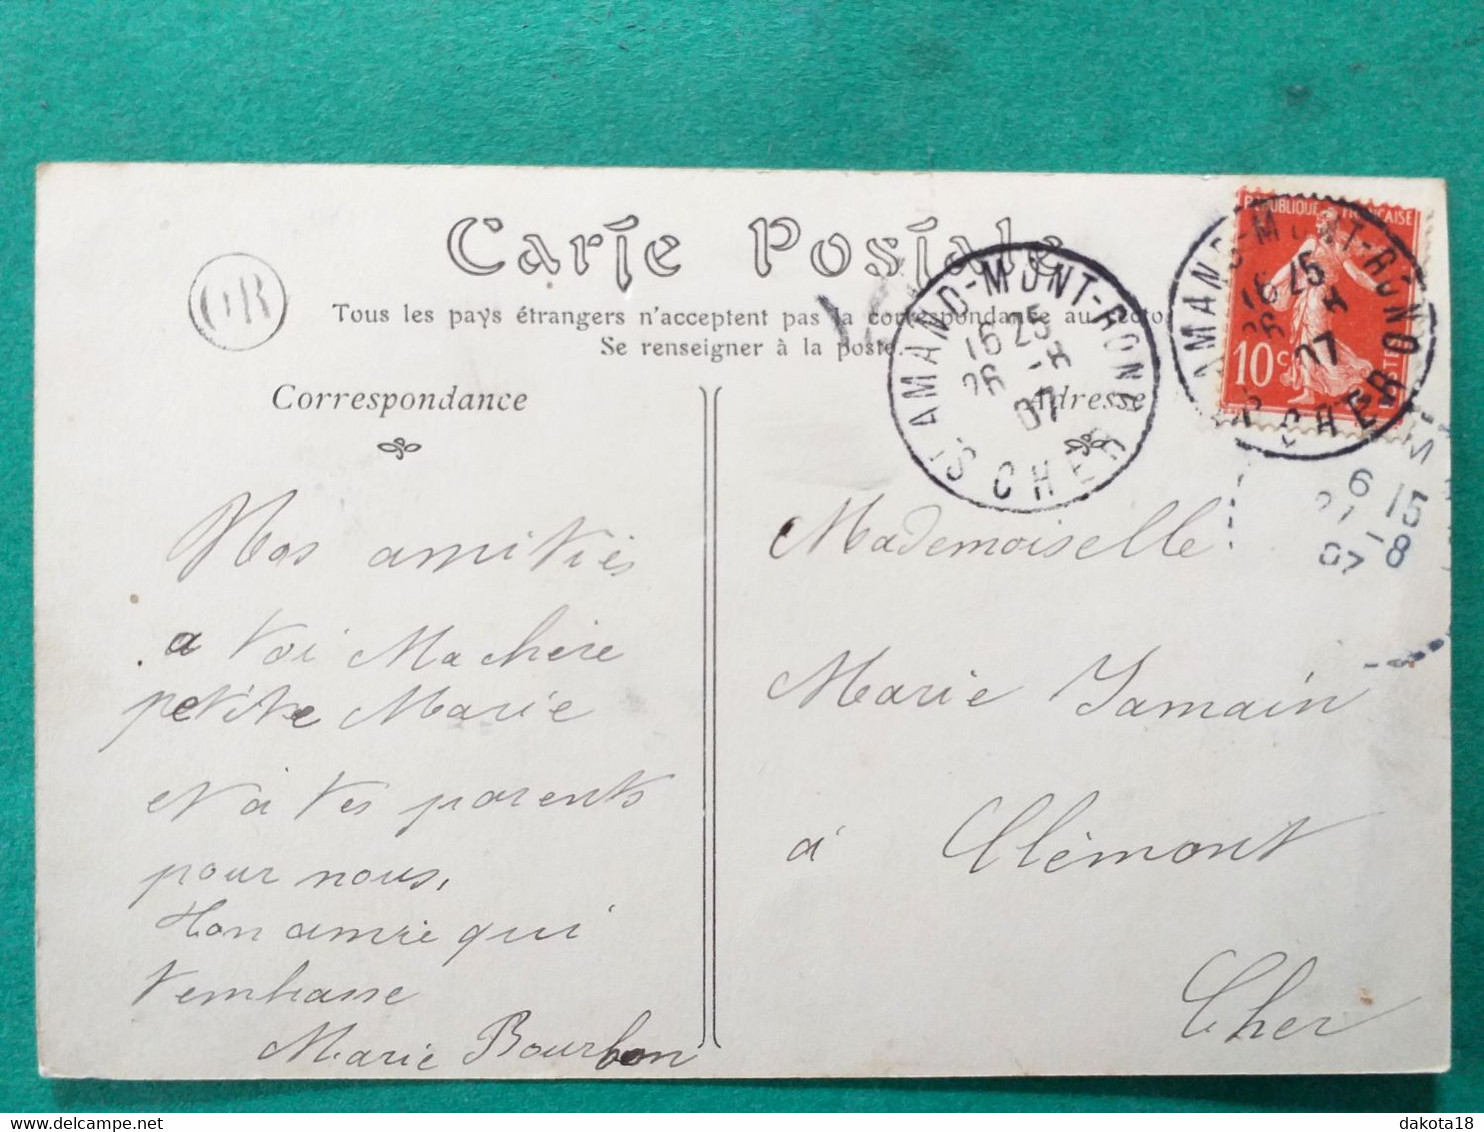 Carte Postale
Tous les pays étrangers n'acceptent pas la correspondance au recto
Se renseigner à la poste.
OR
Correspondance
Adresse
RÉPUBLIQUE FRANÇAISE
10c
POSTES
ST AMAND-MONT-ROND
16 25
26 -8
07
CHER
ST AMAND-MONT-ROND
16 25
26 8
07
CHER
6 15
27 -8
07
Nos amitiés
a toi Ma chère
petite Marie
et à tes parents
pour nous,
Ton amie qui
t'embrasse
Marie Bourbon
Mademoiselle
Marie Jamain
à Clémont
Cher
dakota18